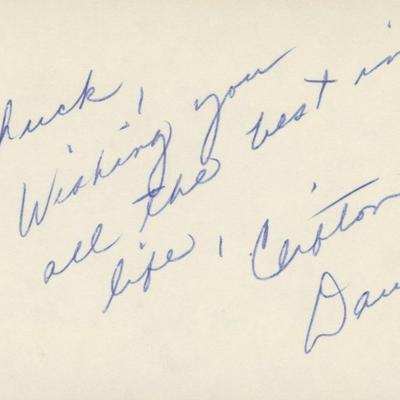 Chuck,
Wishing you
all the best in
life, Clifton
Davis